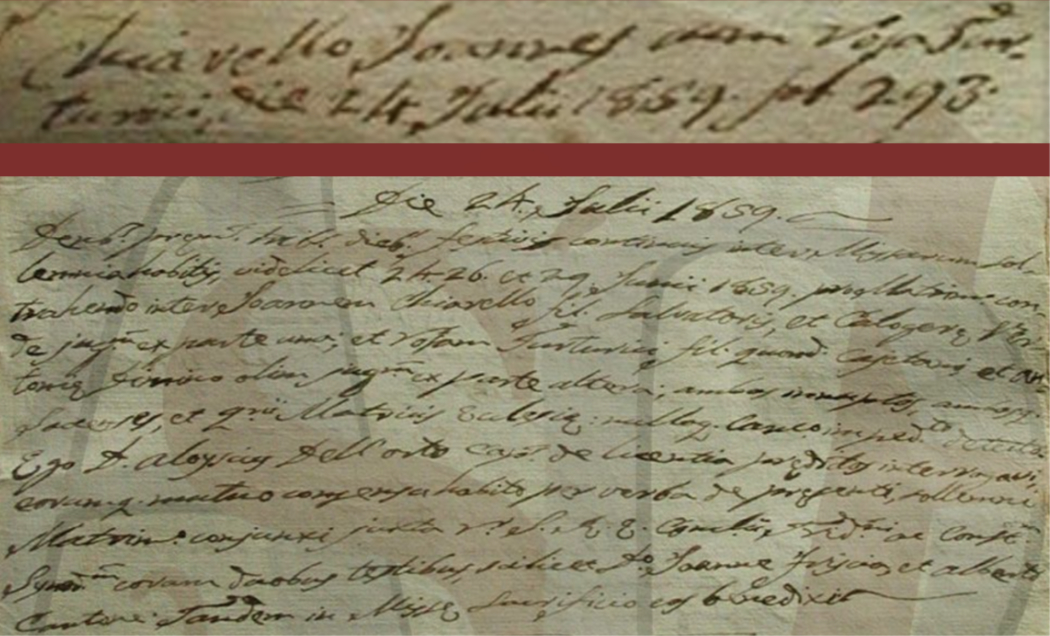 Chiavello Joannes cum Rosa Tur-
turici, die 24. Julii 1859. pl 293.
Die 24. Julii 1859.
tribs. diebs. festivis continuis inter Missarum sol-
lemnia habitis, videlicet 24. 26. et 29. Junii 1859. pro Matrim: con
trahendo inter Joannem Chiavello fil. Salvatoris, et Calogerę
de jug. ex parte una; et Rosam Turturici fil. quond. Cajetani et An
tonię olim jug. ex parte altera; ambos innuptos, ambos
et Matricis Eclesię: nulloq. Canco imped.to detecto
Ego D. Aloysius Dell'orto Caps. de licentia pręditos interrogavi,
eorumq. mutuo consensu habito per verba de pręsenti, sollemni
Matrim: conjunxi juxta r. S. R. E. ac Const.
coram duobus testibus, scilicet Do. Joanne et Alberto
Tandem in Missę Sacrificio eos benedixit